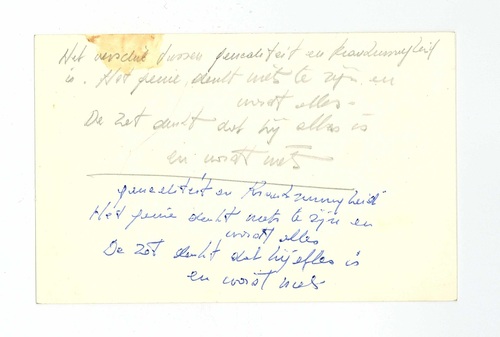 Het verschil tussen genialiteit en krankzinnigheid
is. Het genie denkt niets te zijn en
wordt alles
De zot denkt dat hij alles is
en wordt niets
genialiteit en Krankzinnigheid
Het genie denkt niets te zijn en
wordt alles
De zot denkt dat hij alles is
en wordt niets